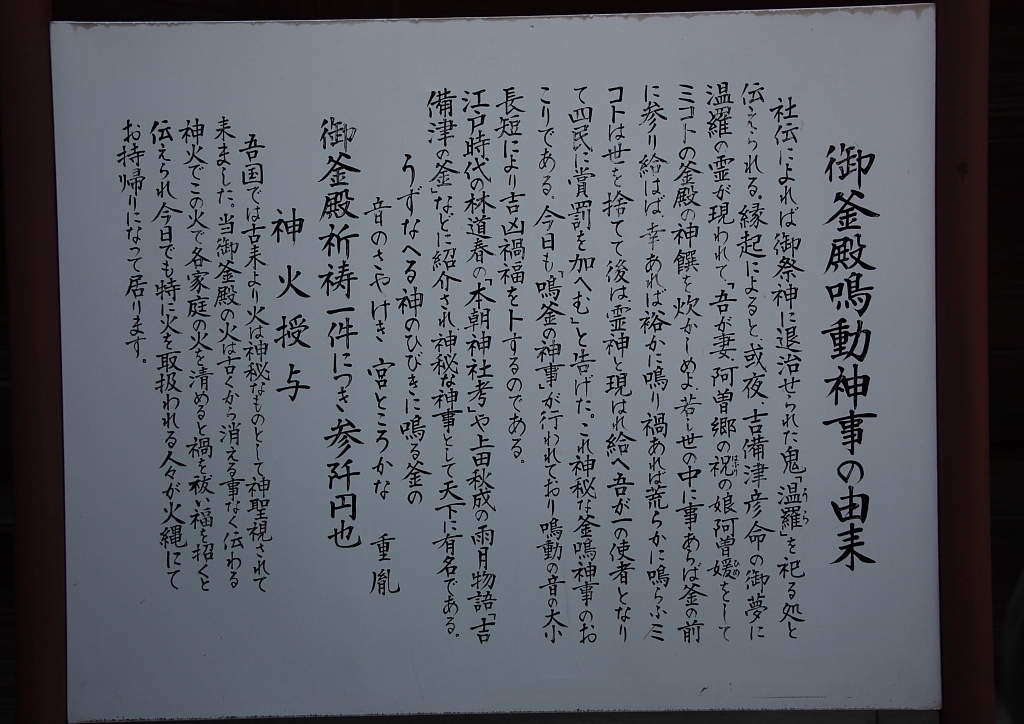 御釜殿鳴動神事の由来
社伝によれば御祭神に退治せられた鬼「温羅」を祀る処と
うら
伝えられる。縁起によると、或夜、吉備津彦命の御夢に
温羅の霊が現われて「吾が妻、阿曽郷の祝の娘阿曽媛をして
はふり
ひめ
ミコトの釜殿の神饌を炊かしめよ、若し世の中に事あらば釜の前
に参り給はば、幸あれば裕かに鳴り禍あれば荒らかに鳴らふミ
コトは世を捨てて後は霊神と現はれ給へ吾が一の使者となり
て四民に賞罰を加へむ」と告げた。これ神秘な釜鳴神事のお
こりである。今日も「鳴釜の神事」が行われており鳴動の音の大小
長短により吉凶禍福を卜するのである。
江戸時代の林道春の「本朝神社考」や上田秋成の雨月物語「吉
備津の釜」などに紹介され神秘な神事として天下に有名である。
うずなへる神のひびきに鳴る釜の
音のさやけき 宮ところかな 重胤
御釜殿祈祷一件につき参阡円也
神火授与
吾国では古来より火は神秘なものとして神聖視されて
来ました。当御釜殿の火は古くから消える事なく伝わる
神火でこの火で各家庭の火を清めると禍を祓い福を招くと
伝えられ今日でも特に火を取扱われる人々が火縄にて
お持帰りになって居ります。